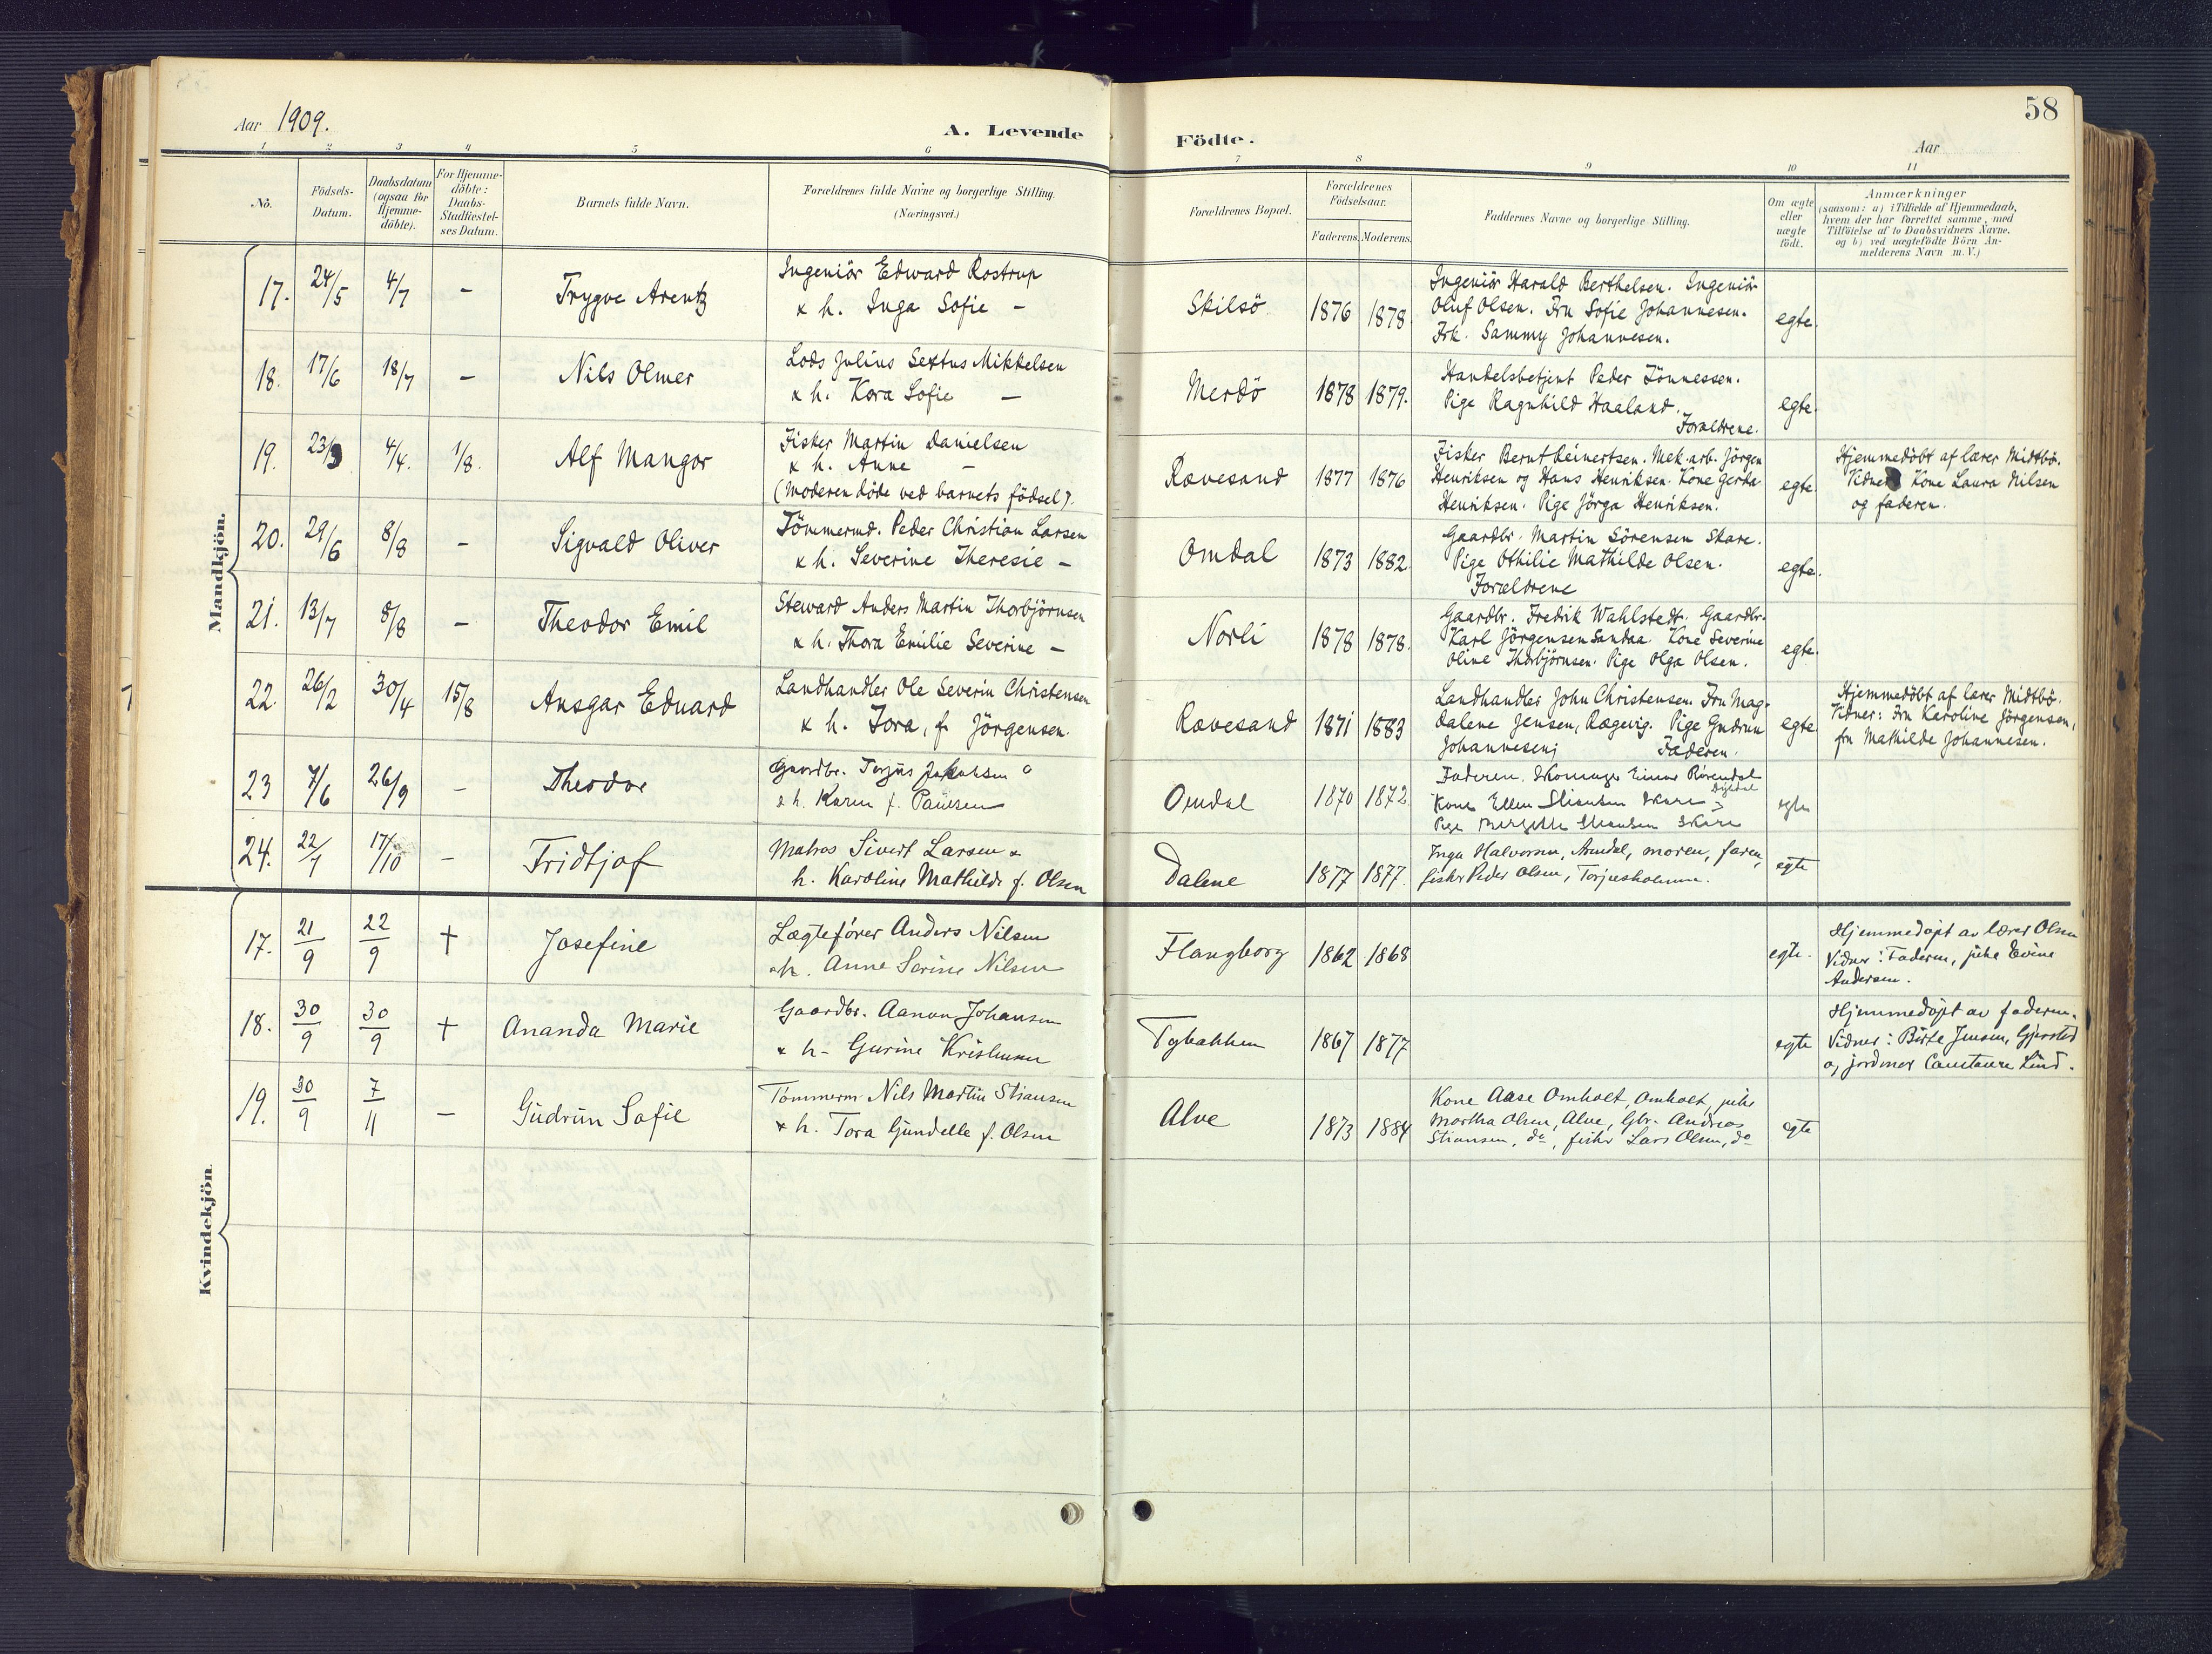 58
Aar 1909.
A. Levende
Födte.
Aar
1 2 3 4 5 6 7 8 9 10 11
No.
Födsels-
Datum.
Daabsdatum
(ogsaa for
Hjemme-
döbte).
For Hjemme-
döbte:
Daabs-
Stadfæstel-
ses Datum.
Barnets fulde Navn.
Forældrenes fulde Navne og borgerlige Stilling.
(Næringsvei.)
Forældrenes Bopæl.
Forældrenes
Födselsaar.
Faderens. Moderens.
Faddernes Navne og borgerlige Stilling.
Om ægte
eller
uægte
födt.
Anmærkninger
(saasom: a) i Tilfælde af Hjemmedaab,
hvem der har forrettet samme, med
Tilföielse af to Daabsvidners Navne.
og b) ved uægtefödte Börn An-
melderens Navn m. V.)
Mandkjön.
17. 24/5 4/7 - Trygve Arentz
Ingeniör Edward Rostrup
& h. Inga Sofie -
Skilsö 1876 1878.
Ingeniör Harald Berthelsen. Ingeniör
Oluf Olsen. Fru Sofie Johannesen.
Frk. Sammy Johannesen.
egte.
18. 17/6 18/7 - Nils Olmer
Lods Julius Sextus Mikkelsen
& h. Kora Sofie -
Merdö 1878 1879.
Handelsbetjent Peder Tönnessen.
Pige Ragnhild Haaland.
Forældrene.
egte.
19. 23/3 4/4. 1/8. Alf Mangor
Fisker Martin Danielsen
& h. Anne -
(Moderen döde ved barnets födsel).
Rævesand 1877 1876
Fisker Bernt Reinertsen. Mek. arb. Jörgen
Henriksen og Hans Henriksen. Kone Gerha
Henriksen. Pige Jörga Henriksen.
egte.
Hjemmedöbt af lærer Midtbö.
Vidne Kone Laura Nilsen
og faderen.
20. 29/6 8/8 - Sigvald Oliver
Tömmermd. Peder Christian Larsen
& h. Severine Theresie -
Omdal 1873 1882.
Gaardbr. Martin Sörensen Skare.
Pige Othilie Mathilde Olsen.
Forældrene
egte.
21. 13/7 8/8 - Theodor Emil
Steward Anders Martin Thorbjörnsen
& h. Thora Emilie Severine -
Norli 1878 1878.
Gaardbr. Fredrik Wahlstedt. Gaardbr.
Karl Jörgensen Sandaa. Kone Severine
Oline Thorbjörnsen. Pige Olga Olsen.
egte.
22. 26/2 30/4 15/8 Ansgar Edvard
Landhandler Ole Severin Christensen
& h. Tora, f. Jörgensen.
Rævesand 1871 1883
Landhandler John Christensen. Fru Mag-
dalene Jensen, Rægevig. Pige Gudrun
Johannesen;
Faderen.
egte
Hjemmedöbt af lærer Midtbö.
Vidner: Fru Karoline Jörgensen,
fru Mathilde Johannesen.
23 7/6 26/9 - Theodor
Gaardbr. Terjus Jakobsen
& h. Karen f. Paulsen
Omdal 1870 1872.
Faderen. Skomager Einar Rörendal
Kone Ellen Stiansen Skare
Pige Stiansen Skare
egte
24. 22/7 17/10 - Fridtjof
Matros Sivert Larsen &
h. Karoline Mathilde f. Olsen
Dalene 1877 1877.
Inga Halvorsen, Arendal, moren, faren,
fisker Peder Olsen, Torjusholmen.
egte
Kvindekjön.
17. 21/9 22/9 † Josefine
Lægtefører Anders Nilsen
& h. Anne Serine Nilsen
Flangborg 1862 1868
egte.
Hjemmedøpt av lærer Olsen
Vidner: Faderen, pike Evine
Andersen.
18. 30/9 30/9 † Ananda Marie
Gaardbr. Aanon Johansen
& h. Gurine Kristensen
Tybakken 1867 1877
egte
Hjemmedøpt av faderen.
Vidner: Birte Jensen, Gjerstad
og jordmor Constanse Lind.
19. 30/9 7/11 - Gudrun Sofie
Tømmerm. Nils Martin Stiansen
& h. Tora Gundelle f. Olsen
Alve 1873 1884
Kone Aase Omholt, Omholt, pike
Martha Olsen, Alve, Gbr. Andreas
Stiansen, do, fisker Lars Olsen, do
egte